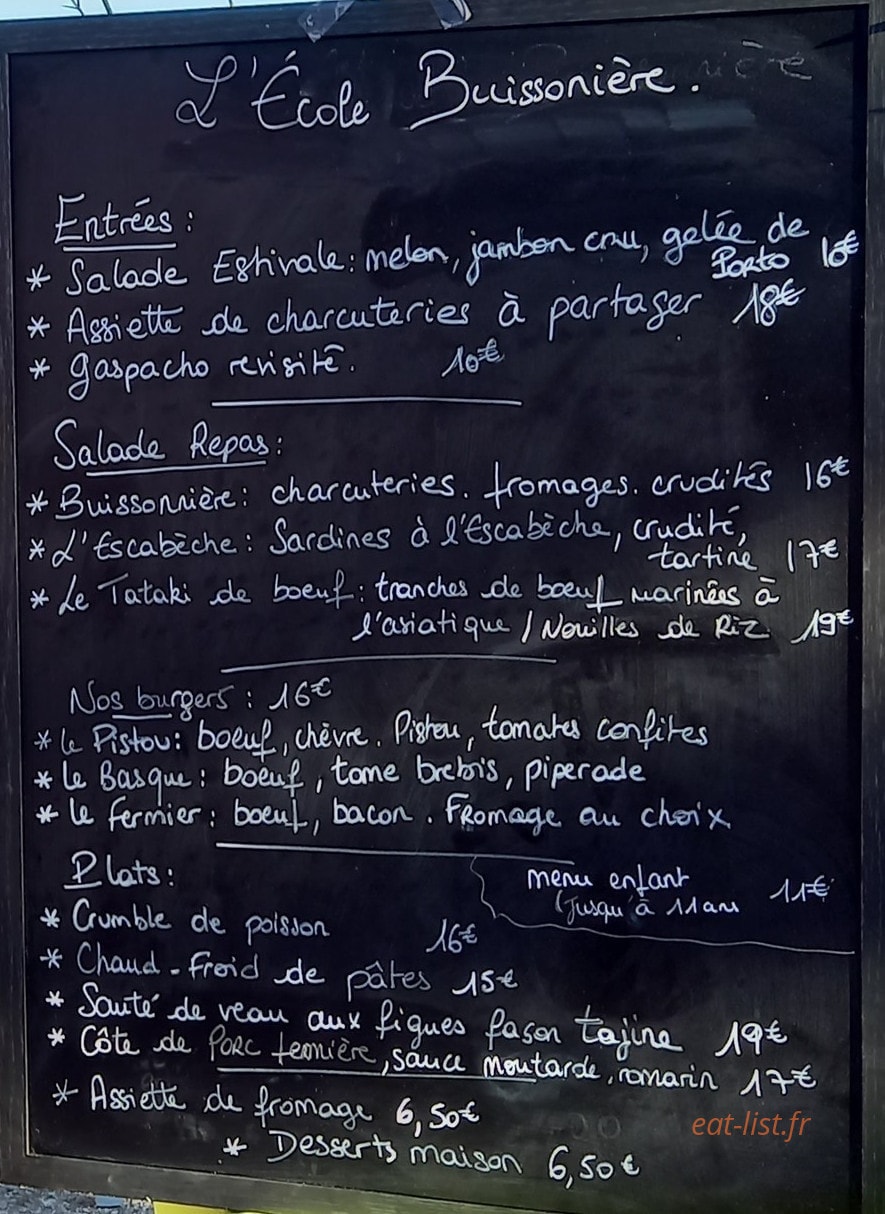 L'École Buissonière.
Entrées :
* Salade Estivale : melon, jambon cru, gelée de
Porto 10€
* Assiette de charcuteries à partager 18€
* gaspacho revisité. 10€
Salade Repas :
* Buissonnière : charcuteries. fromages. crudités 16€
* L'Escabèche : Sardines à l'Escabèche, crudité,
tartine 17€
* Le Tataki de boeuf : tranches de boeuf marinées à
l'asiatique / Nouilles de Riz 19€
Nos burgers : 16€
* Le Pistou : boeuf, chèvre. Pistou, tomates confites
* Le Basque : boeuf, tome brebis, piperade
* Le Fermier : boeuf, bacon. Fromage au choix
Plats :
menu enfant 11€
(jusqu'à 11 ans
* Crumble de poisson 16€
* Chaud-Froid de pâtes 15€
* Sauté de veau aux figues façon tajine 19€
* Côte de Porc fermière, sauce moutarde, romarin 17€
* Assiette de fromage 6,50€
eat-list.fr
* Desserts maison 6,50€